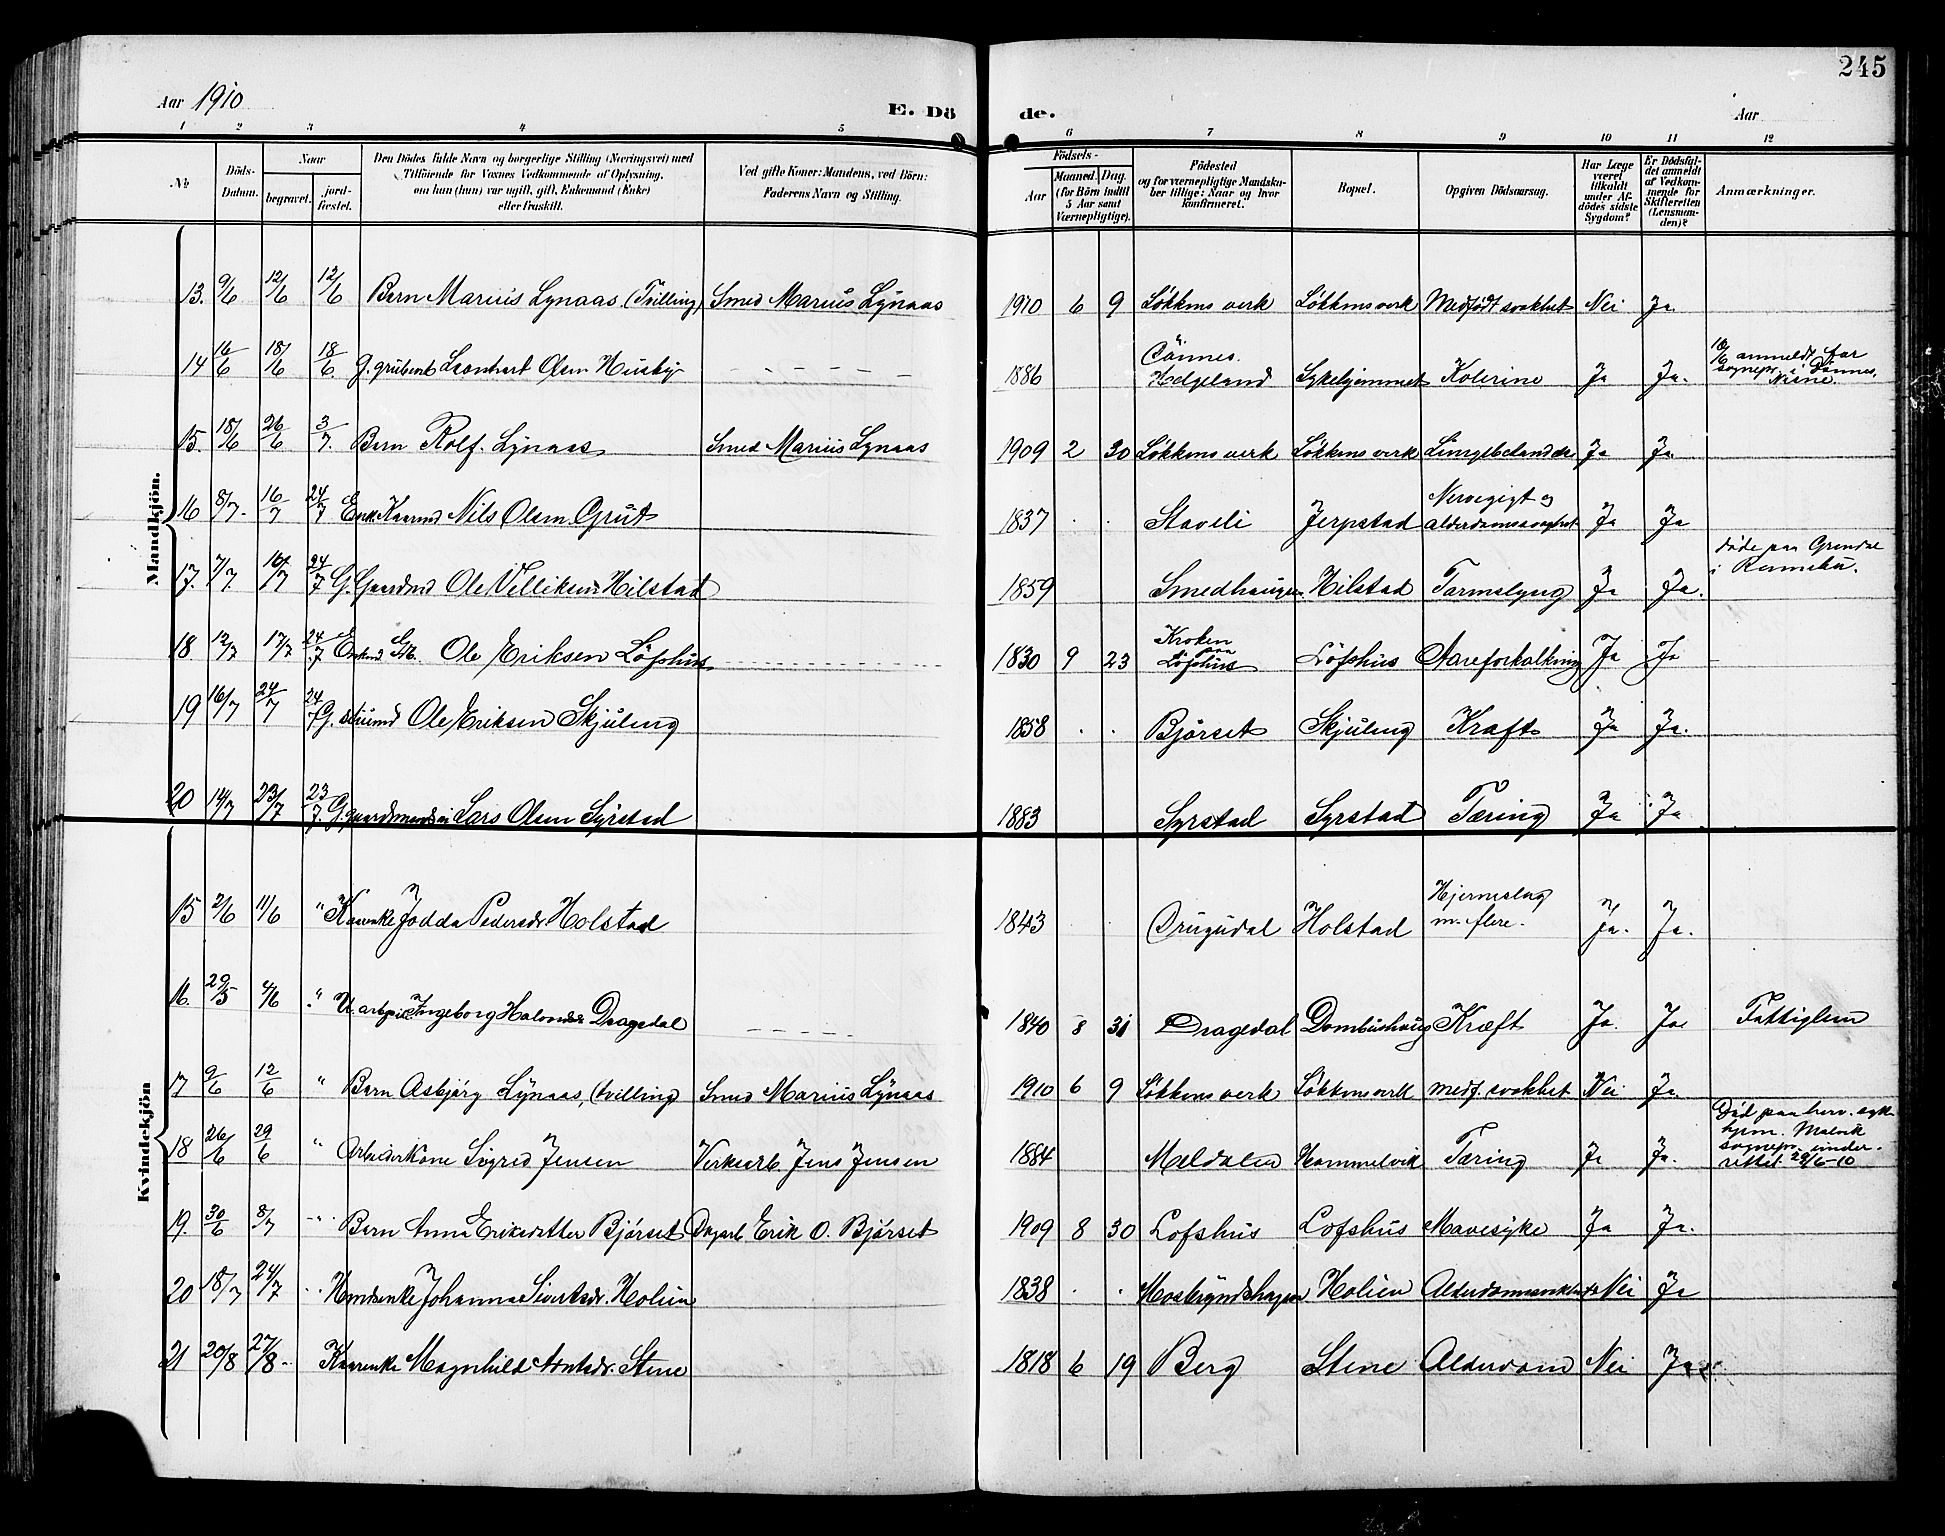 245
Aar 1910
E. Dö
de.
Aar
1 2 3 4 5 6 7 8 9 10 11 12
No
Döds-Datum.
Naar
begravet.
jord-fæstet.
Den Dödes fulde Navn og borgerlige Stilling (Næringsvei) med
Tilföiende for Voxnes Vedkommende af Oplysning,
om han (hun) var ugift, gift, Enkemand (Enke)
eller fraskilt.
Ved gifte Koner: Mandens, ved Börn:
Faderens Navn og Stilling.
Födsels-
Aar
Maaned. Dag.
(for Börn indtil
5 Aar samt
Værnepligtige).
Födested
og for værnepligtige Mandska-
ber tillige: Naar og hvor
konfirmeret.
Bopæl.
Opgiven Dödsaarsag.
Har Læge
været
tilkaldt
under Af-
dödes sidste
Sygdom?
Er Dödsfal-
det anmeldt
af Vedkom-
mende for
Skifteretten
(Lensman-
den)?
Anmærkninger.
Mandkjön.
13. 9/6 12/6 12/6 Barn Marius Lynaas (Tvilling) Smed Marius Lynaas 1910 6 9 Løkkens verk Løkkens verk Medfødt svakhet Nei Ja
14 16/6 18/6 18/6 G. grubearb Leonhart Olsen Husby 1886 Dønnes. Helgeland Sykehjemmet Kolerine Ja Ja. 18/6 anmeldt for sognepr. i Dönnes,
15. 18/6 26/6 3/7. Barn Rolf Lynaas Smed Marius Lynaas 1909 2 20 Løkkens verk Løkkens verk Ja Ja
16 8/7. 16/7 24/7 Enk. Kaarmd Nils Olsen Grut 1837 . . Staveli Jerpstad Nervegigt og alderdomssvaghet Ja Ja
17. 7/7. 16/7 24/7 G. Gaardmd Ole Villiksen Hilstad 1859 Smedhaugen Hilstad Tarmslyng Ja Ja. Døde paa Grindal i Rennebu.
18. 12/7 17/7 24/7 Enkmd Ole Eriksen Löfshus 1830 9 23 Kroken paa Löfshus Löfshus Aareforkalkning Ja Ja
19 16/7 24/7 24/7 G. Ole Eriksen Skjuleng 1858 . . Bjørset Skjuleng Kræft Ja Ja.
20 14/7 23/7 23/7 G. gaardmands Lars Olsen Syrstad 1883 Syrstad Syrstad Tæring Ja Ja
Kvindekjön
15 2/6 11/6 " Kaarenke Jodda Pedersdr Holstad 1843 Drugudal Holstad Hjerneslag m. flere. Ja. Ja.
16. 29/5 4/6 " U. arbpige Ingeborg Halvorsdr Dragedal 1840 8 31 Dragedal Dombushaug Kræft Ja. Ja Fattiglem
17 9/6 12/6 " Barn Asbjörg Lynaas, (tvilling) Smed Marius Lynaas 1910 6 9 Løkkens verk Løkkens verk medf. svakhet Nei Ja
18 26/6 29/6 " Arbeiderkone Sigrid Jensen Verksarb. Jens Jensen 1884 Meldalen Hommelvik Tæring Ja Ja. Död paa herv. syk hjem. Malvik sognepr. under-rettet 28/6-10
19. 30/6 8/7 " Barn Anna Eriksdatter Bjørset Dagarb. Erik O. Bjørset 1909 8 30 Lofshus Lofshus Mavesyke Ja Ja.
20 18/7 24/7 " Hmdsenke Johanna Sivertsdr. Holien 1838 . . Mosbryndshagen Holien Nei Ja
21 20/8 27/8 - Kaarenke Magnhild Arntsdr. Stene 1818 6 19 Berg Stene Alderdom Nei Ja